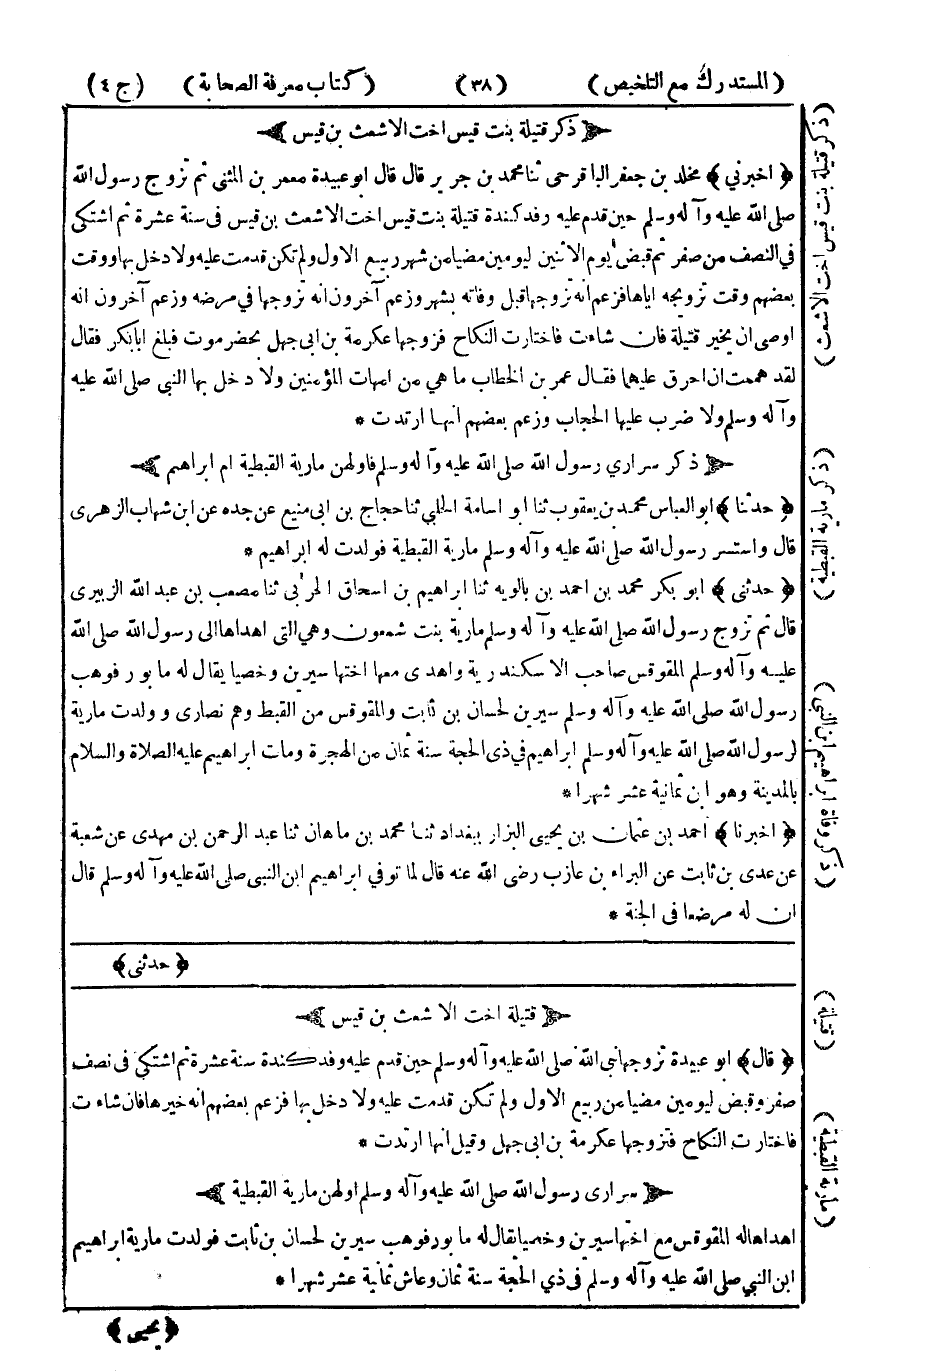 (المستدرك مع التلخيص) (٣٨) (كتاب معرفة الصحابة) (ج ٤)
ذكر قتيلة بنت قيس اخت الاشعث بن قيس
﴿ اخبرني ﴾ مخلد بن جعفر الباقرحى ثنا محمد بن جرير قال قال ابو عبيدة معمر بن المثنى ثم تزوج رسول الله
صلى الله عليه وآله وسلم حين قدم عليه وفد كندة قتيلة بنت قيس اخت الاشعث بن قيس فى سنة عشرة ثم اشتكى
في النصف من صفر ثم قبض يوم الاثنين ليومين مضيا من شهر ربيع الاول ولم تكن قدمت عليه ولا دخل بها ووقت
بعضهم وقت تزويجه اياها فزعم انه تزوجها قبل وفاته بشهر وزعم آخرون انه تزوجها في مرضه وزعم آخرون انه
اوصى ان يخير قتيلة فان شاءت فاختارت النكاح فزوجها عكرمة بن ابى جهل بحضرموت فبلغ ابا بكر فقال
لقد هممت ان احرق عليهما فقال عمر بن الخطاب ما هي من امهات المؤمنين ولا دخل بها النبي صلى الله عليه
وآله وسلم ولا ضرب عليها الحجاب وزعم بعضهم انها ارتدت *
ذكر سراري رسول الله صلى الله عليه وآله وسلم فاولهن مارية القبطية ام ابراهيم
﴿ حدثنا ﴾ ابو العباس محمد بن يعقوب ثنا ابو اسامة الحلبي ثنا حجاج بن ابى منيع عن جده عن ابن شهاب الزهرى
قال واستسر رسول الله صلى الله عليه وآله وسلم مارية القبطية فولدت له ابراهيم *
﴿ حدثنى ﴾ ابو بكر محمد بن احمد بن بالويه ثنا ابراهيم بن اسحاق الحربي ثنا مصعب بن عبد الله الزبيرى
قال ثم تزوج رسول الله صلى الله عليه وآله وسلم مارية بنت شمعون وهي التى اهداها الى رسول الله صلى الله
عليه وآله وسلم المقوقس صاحب الاسكندرية واهدى معها اختها سيرين وخصيا يقال له مابور فوهب
رسول الله صلى الله عليه وآله وسلم سيرين لحسان بن ثابت والمقوقس من القبط وهم نصارى وولدت مارية
لرسول الله صلى الله عليه وآله وسلم ابراهيم في ذى الحجة سنة ثمان من الهجرة ومات ابراهيم عليه الصلاة والسلام
بالمدينة وهو ابن ثمانية عشر شهرا *
﴿ اخبرنا ﴾ احمد بن عثمان بن يحيى البزار ببغداد ثنا محمد بن ماهان ثنا عبد الرحمن بن مهدى عن شعبة
عن عدى بن ثابت عن البراء بن عازب رضى الله عنه قال لما توفي ابراهيم ابن النبى صلى الله عليه وآله وسلم قال
ان له مرضعا فى الجنة *
﴿ حدثنى ﴾
قتيلة اخت الاشعث بن قيس
﴿ قال ﴾ ابو عبيدة تزوجها نبي الله صلى الله عليه وآله وسلم حين قدم عليه وفد كندة سنة عشرة ثم اشتكى فى نصف
صفر وقبض ليومين مضيا من ربيع الاول ولم تكن قدمت عليه ولا دخل بها فزعم بعضهم انه خيرها فان شاءت
فاختارت النكاح فتزوجها عكرمة بن ابى جهل وقيل انها ارتدت *
سرارى رسول الله صلى الله عليه وآله وسلم اولهن مارية القبطية
اهداها له المقوقس مع اختها سيرين وخصيا يقال له مابور فوهب سيرين لحسان بن ثابت فولدت مارية ابراهيم
ابن النبي صلى الله عليه وآله وسلم فى ذي الحجة سنة ثمان وعاش ثمانية عشر شهرا *
﴿ يحيى ﴾
(ذكر قتيلة بنت قيس اخت الاشعث)
(ذكر مارية القبطية)
(ذكر وفاة ابراهيم ابن النبى)
(قتيلة)
(مارية القبطية)